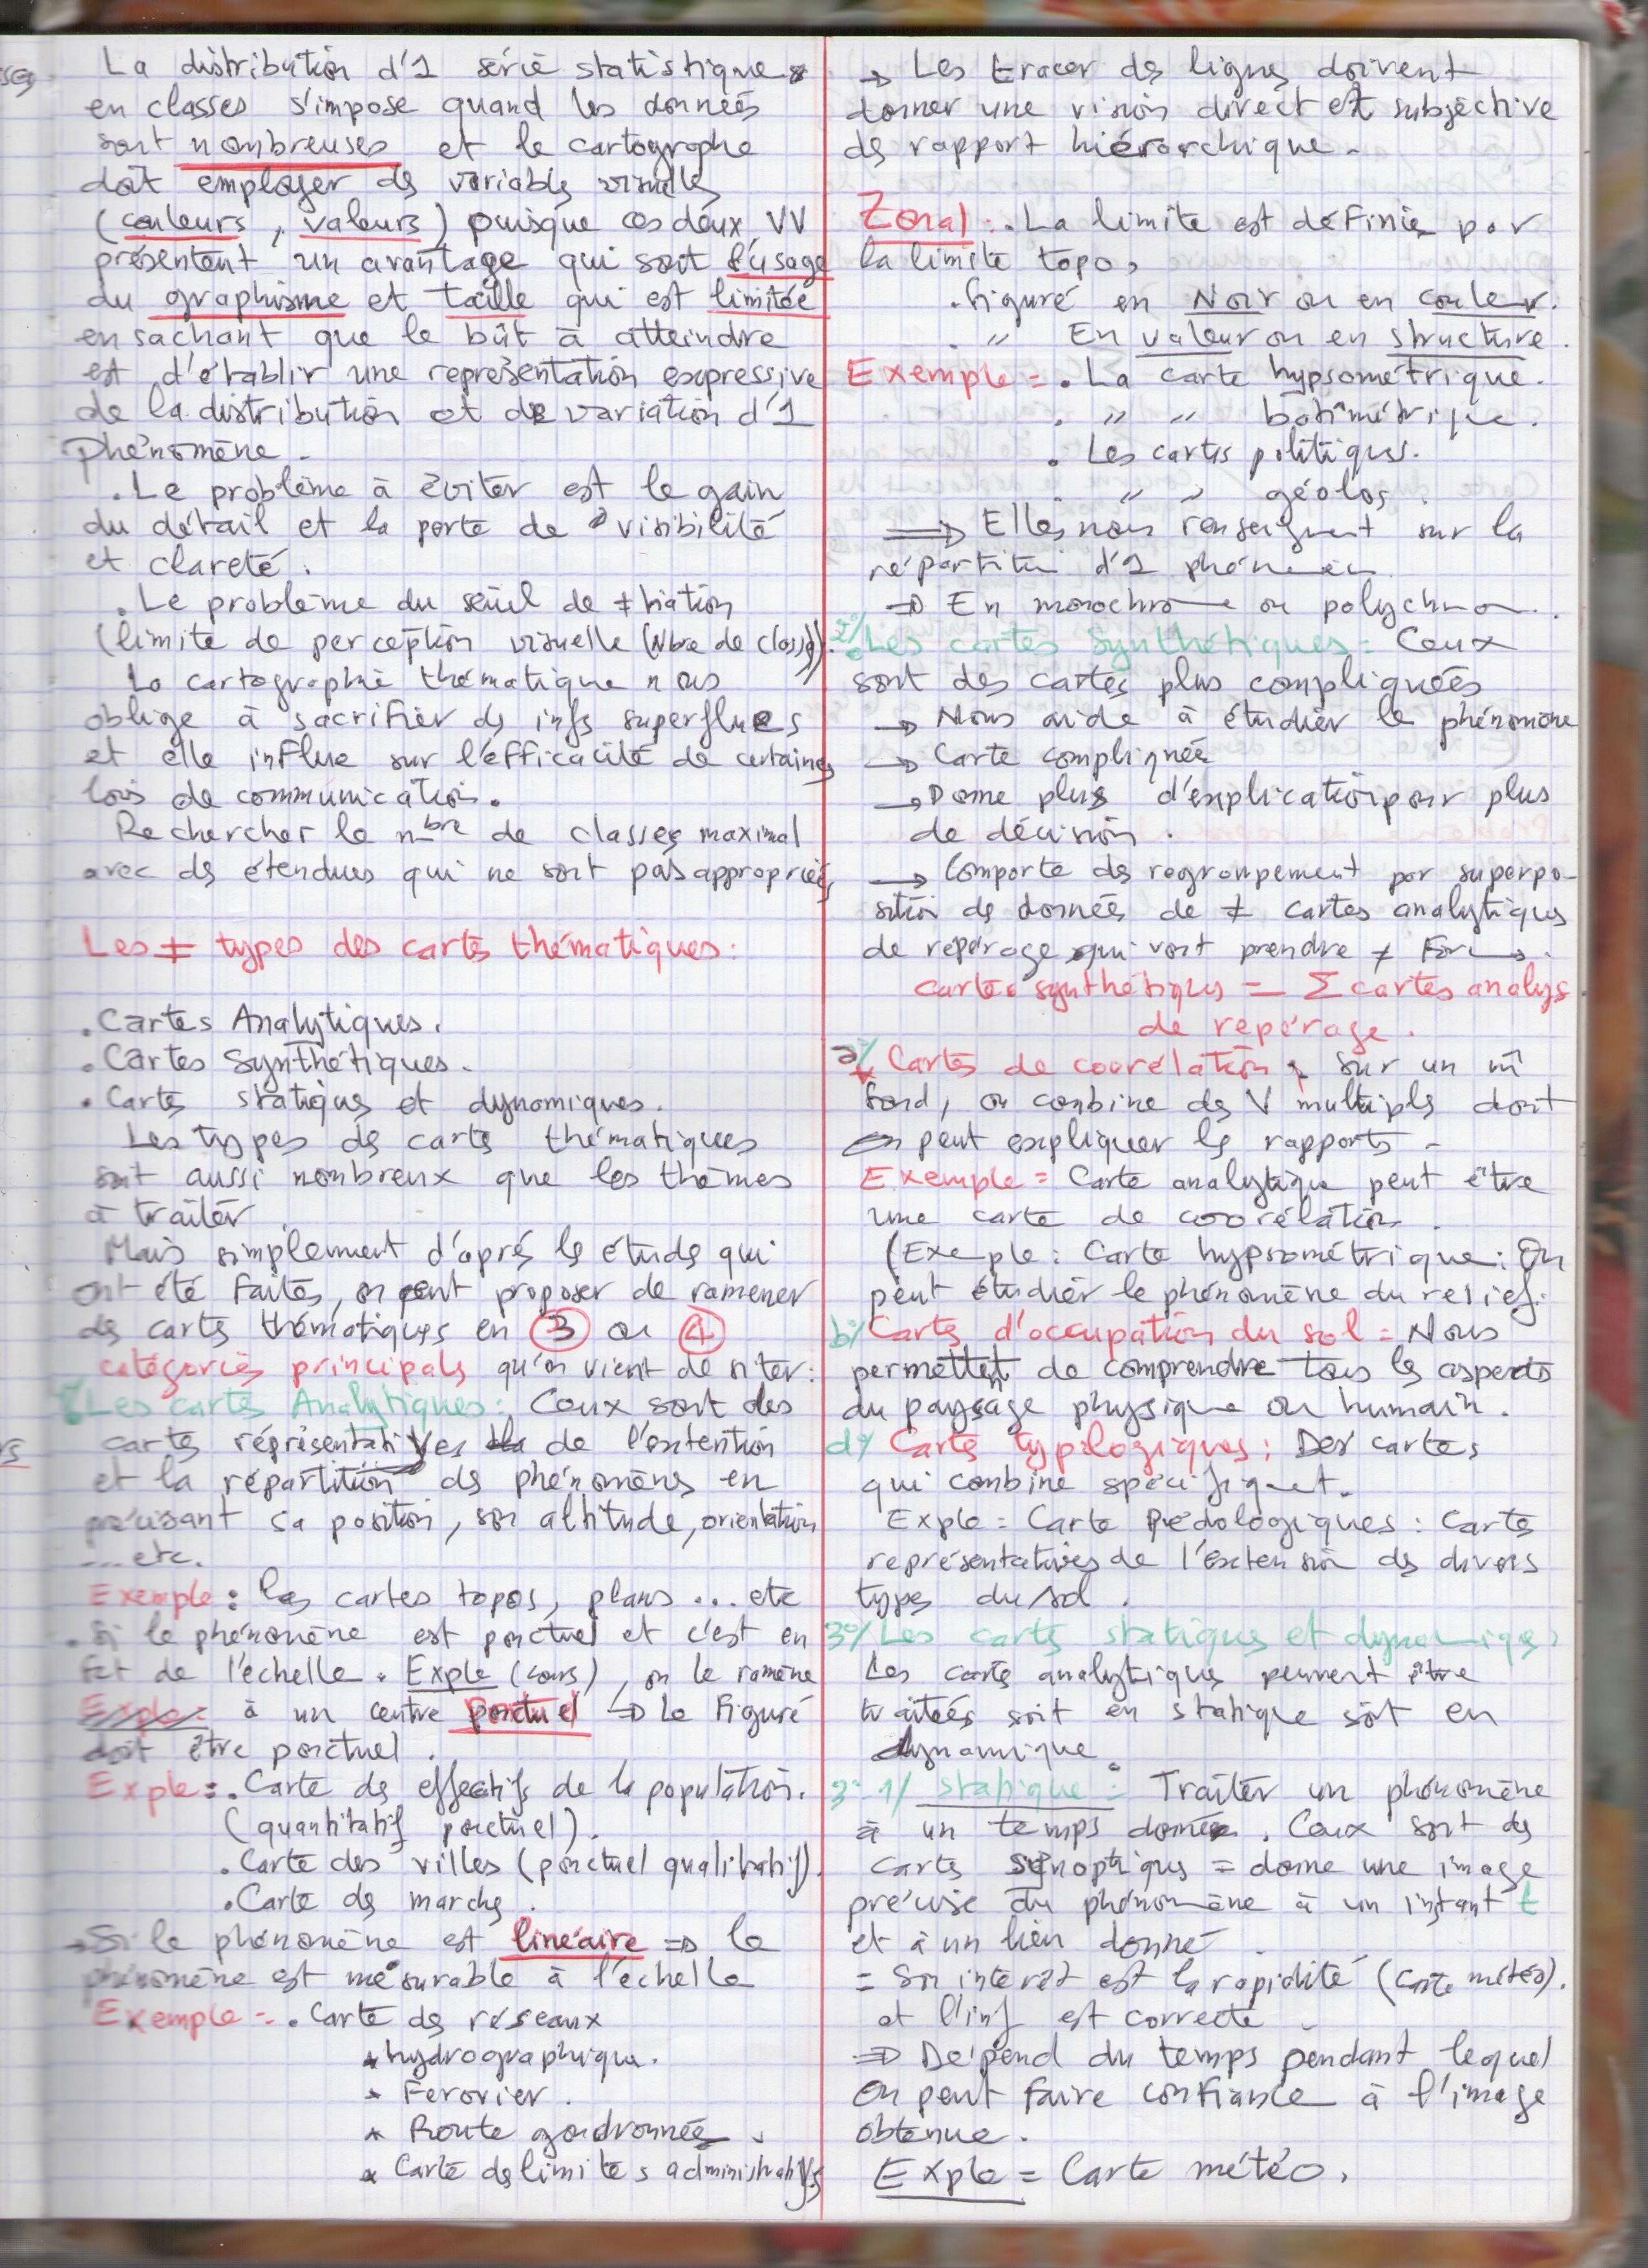 La distribution d'1 série statistiques
en classes s'impose quand les données
sont nombreuses et le cartographe
doit employer des variables visuelles
(couleurs, valeurs) puisque ces deux VV
présentent un avantage qui sont l'usage
du graphisme et taille qui est limitée
en sachant que le bût à atteindre
est d'établir une représentation expressive
de la distribution et de variation d'1
phénomène.
. Le problème à éviter est le gain
du détail et la perte de visibilité
et clareté.
. Le problème du seuil de ≠ tiation
(limite de perception visuelle (Nbre de classes)).
La cartographie thématique nous
oblige à sacrifier des infs superflues
et elle influe sur l'efficacité de certaines
lois de communication.
Rechercher le nbre de classes maximal
avec des étendues qui ne sont pas appropriées
Les ≠ types des cartes thématiques :
. Cartes Analytiques.
. Cartes Synthétiques.
. Cartes statiques et dynamiques.
Les types de carte thématiques
sont aussi nombreux que les thèmes
à traiter
Mais simplement d'après les études qui
ont été faites, on peut proposer de ramener
des cartes thématiques en 3 ou 4
catégories principals qu'on vient de siter :
Les cartes Analytiques : Ceux sont des
cartes réprésentatives de l'extention
et la répartition des phénomèns en
précisant sa position, son altitude, orientation
... etc.
Exemple : les cartes topos, plans ... etc
. Si le phénomène est ponctuel et c'est en
fct de l'échelle. Exple (cours), on le ramène
Exple = à un centre ponctuel ↳ Le Figuré
doit être ponctuel.
Exple = . Carte des effectifs de la population.
(quantitatif ponctuel).
. Carte des villes (ponctuel qualitatif).
. Carte des marchs.
→ Si le phénomène est linéaire ⇒ le
phénomène est mésurable à l'échelle
Exemple = . Carte des réseaux
* hydrographique.
* Ferovier.
* Route goudronnée.
* Carte des limites administratives
→ Les tracer des lignes doivent
donner une vision direct et subjective
des rapport hiérarchique.
Zonal : . La limite est définie par
la limite topo,
. figuré en Noir ou en couleur.
. " En valeur ou en structure.
Exemple = . La carte hypsométrique.
. " " batimétrique.
. Les cartes politiques.
. " " géolos.
⇒ Elles nous renseignent sur la
répartition d'1 phénomèn
⇒ En monochrome ou polychrom.
2°/ Les cartes Synthétiques = Ceux
sont des cartes plus compliquées
→ Nous aide à étudier le phénomène
→ Carte compliquée
→ Donne plus d'explication pour plus
de décision.
→ Comporte des regroupement par superpo-
sition de données de ≠ cartes analytiques
de repérage qui vont prendre ≠
cartes synthétiques = Σ cartes analys
de repérage.
a/ Cartes de coorélation : Sur un m̂
fond, on conbine des V multiples dont
on peut expliquer les rapports.
Exemple = Carte analytique peut être
une carte de coorélation.
(Exemple : Carte hypsométrique : On
peut étudier le phénomène du relief.
b/ Cartes d'occupation du sol = Nous
permettent de comprendre tous les aspects
du paysage physique ou humain.
d/ Carte typologiques : Des cartes
qui combine spécifiquet.
Exple = Carte Pedologiques : Cartes
représentatives de l'extension des divers
types du sol.
3°/ Les carts statiques et dynamiques
Les cartes analytiques peuvent être
traitées soit en statique soit en
dynamique.
3-1/ statique = Traiter un phénomène
à un temps donnée. Ceux sont des
cartes synoptiques = donne une image
précise du phénomène à un instant t
et à un lien donné.
= Son interêt est la rapidité (carte météo).
et l'inf est correcte.
⇒ Dépend du temps pendant lequel
on peut faire confiance à l'image
obtenue.
Exple = Carte météo.